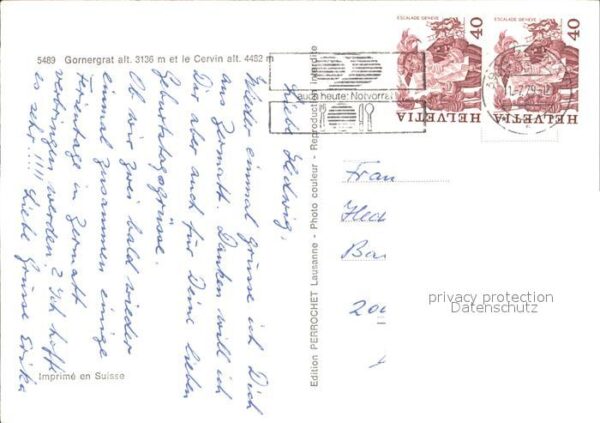 5489   Gornergrat alt. 3136 m et le Cervin alt. 4482 m
Liebe Hedwig,
Wieder einmal grüsse ich Dich
aus Zermatt. Danken will ich
Dir aber auch für Deine lieben
Geburtstagsgrüsse.
Ob wir zwei bald wieder
einmal zusammen einige
Ferientage in Zermatt
verbringen werden? Ich hoffe
es sehr!!!! Liebe Grüsse Erika
Imprimé en Suisse
Edition PERROCHET Lausanne - Photo couleur - Reproduction interdite
auch heute: Notvorrat
ESCALADE GENÈVE
40
HELVETIA
ESCALADE GENÈVE
40
HELVETIA
Frau
privacy protection
Datenschutz